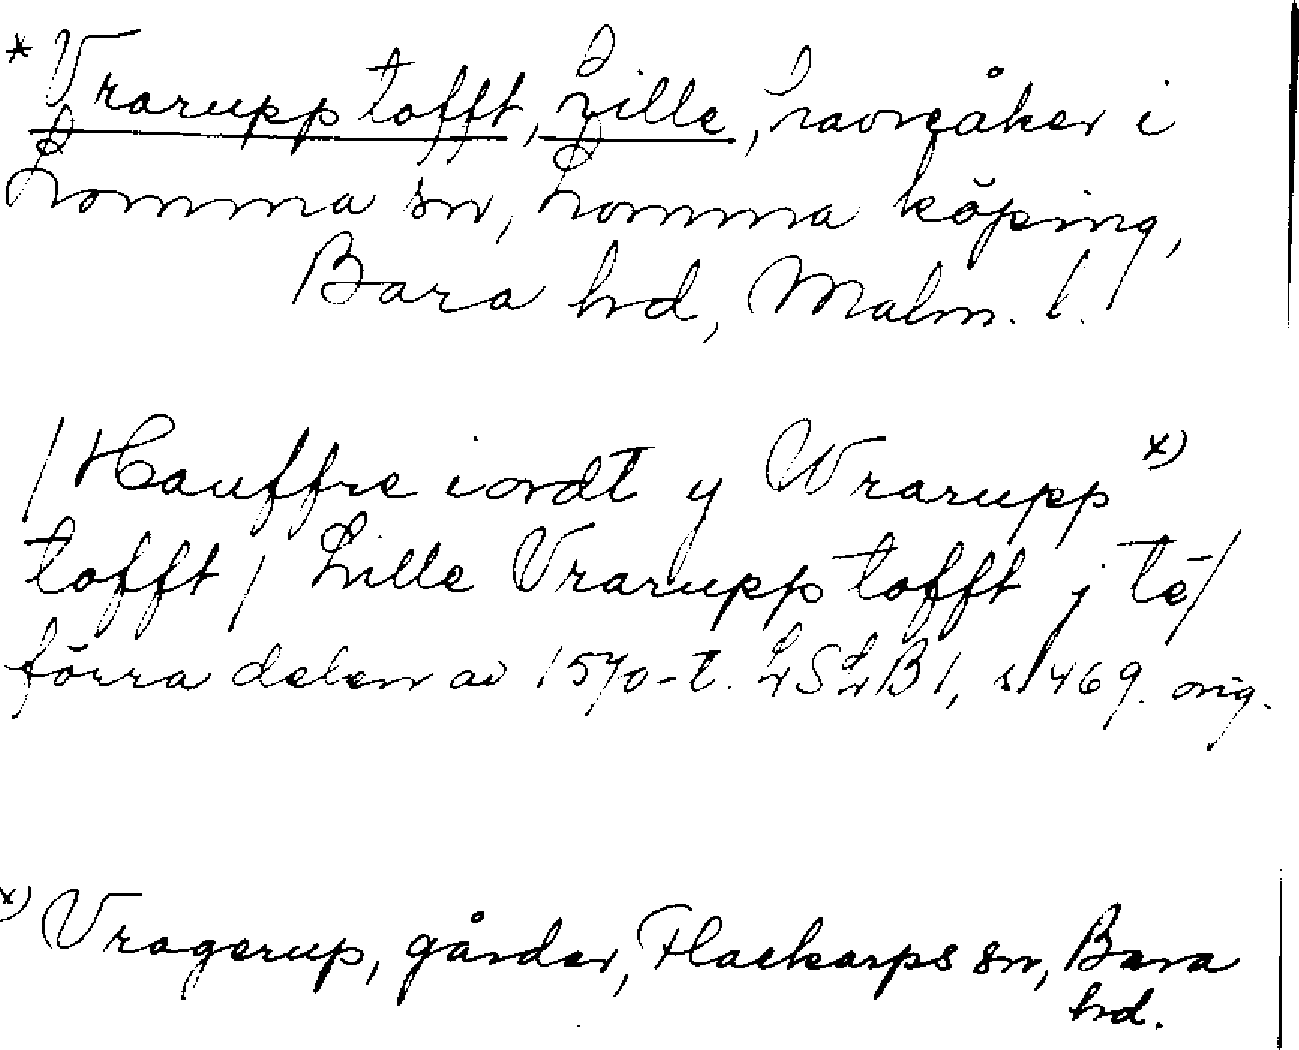 * Vrarupp tofft, Lille, havreåker i
Lomma sn, Lomma köping,
Bara hd, Malm. l.
/Hauffre iordt y Wrarupp x)
tofft/ Lille Vrarupp tofft j té/
förra delen av 1570-t. LSLB1, s 469. orig.
x) Vragerup, gårdar, Flackarps sn, Bara
hd.